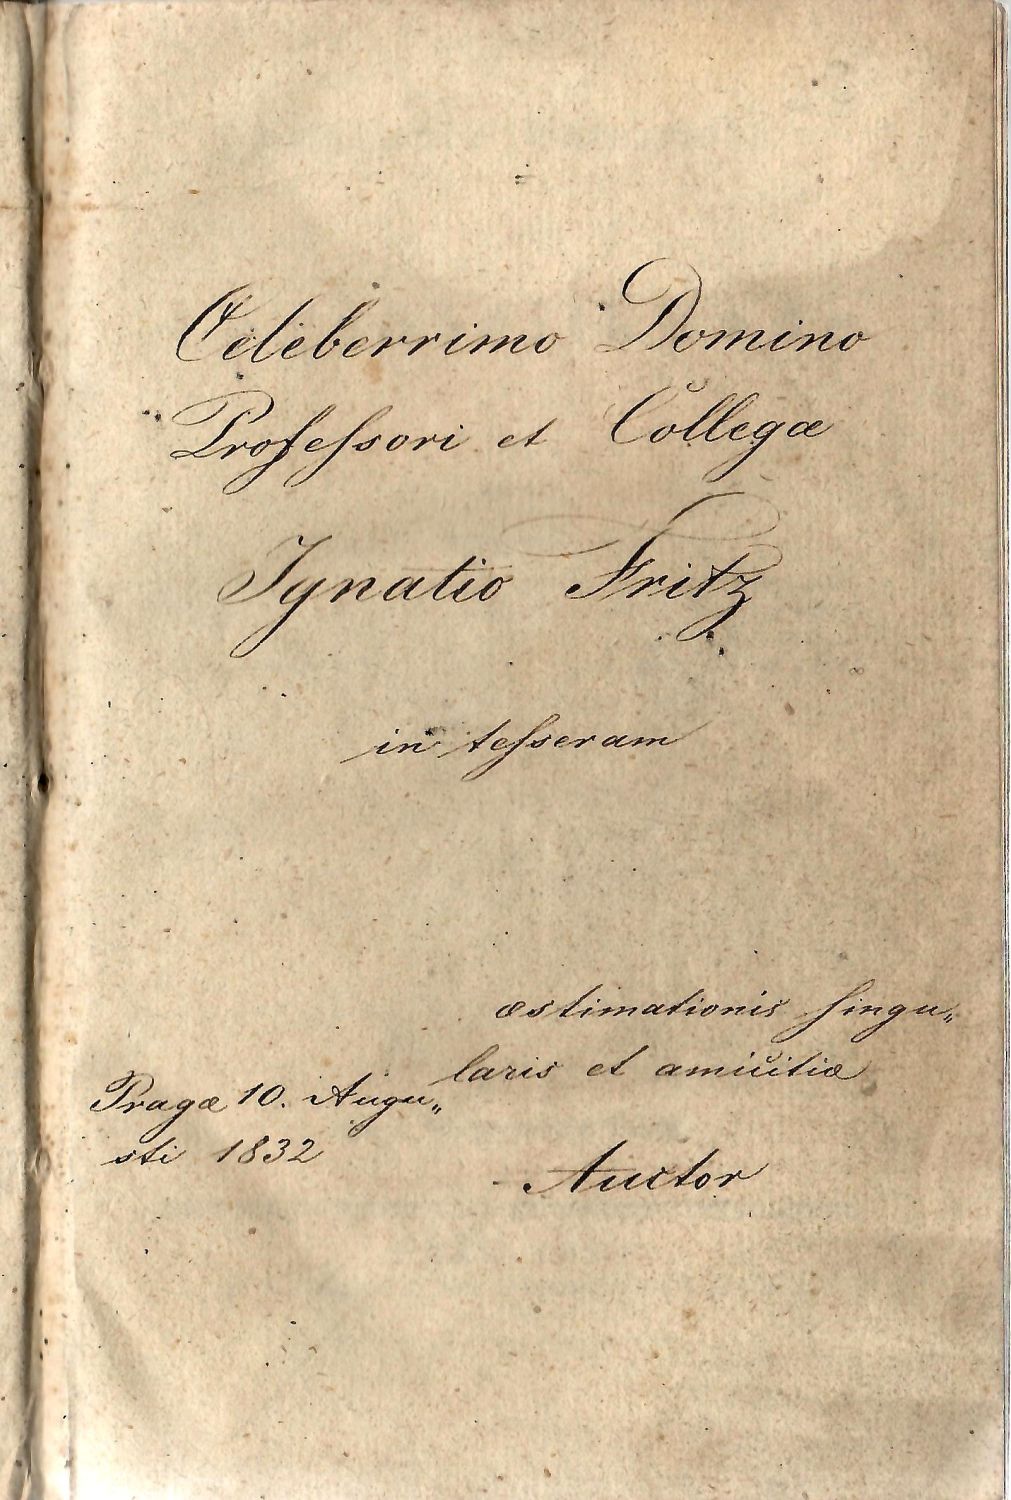 Celeberrimo Domino
Profeſsori et Collegæ
Ignatio Fritz
in teſseram
æstimationis ſingu„
laris et amicitiæ
Pragæ 10. Augu„
sti 1832
Auctor